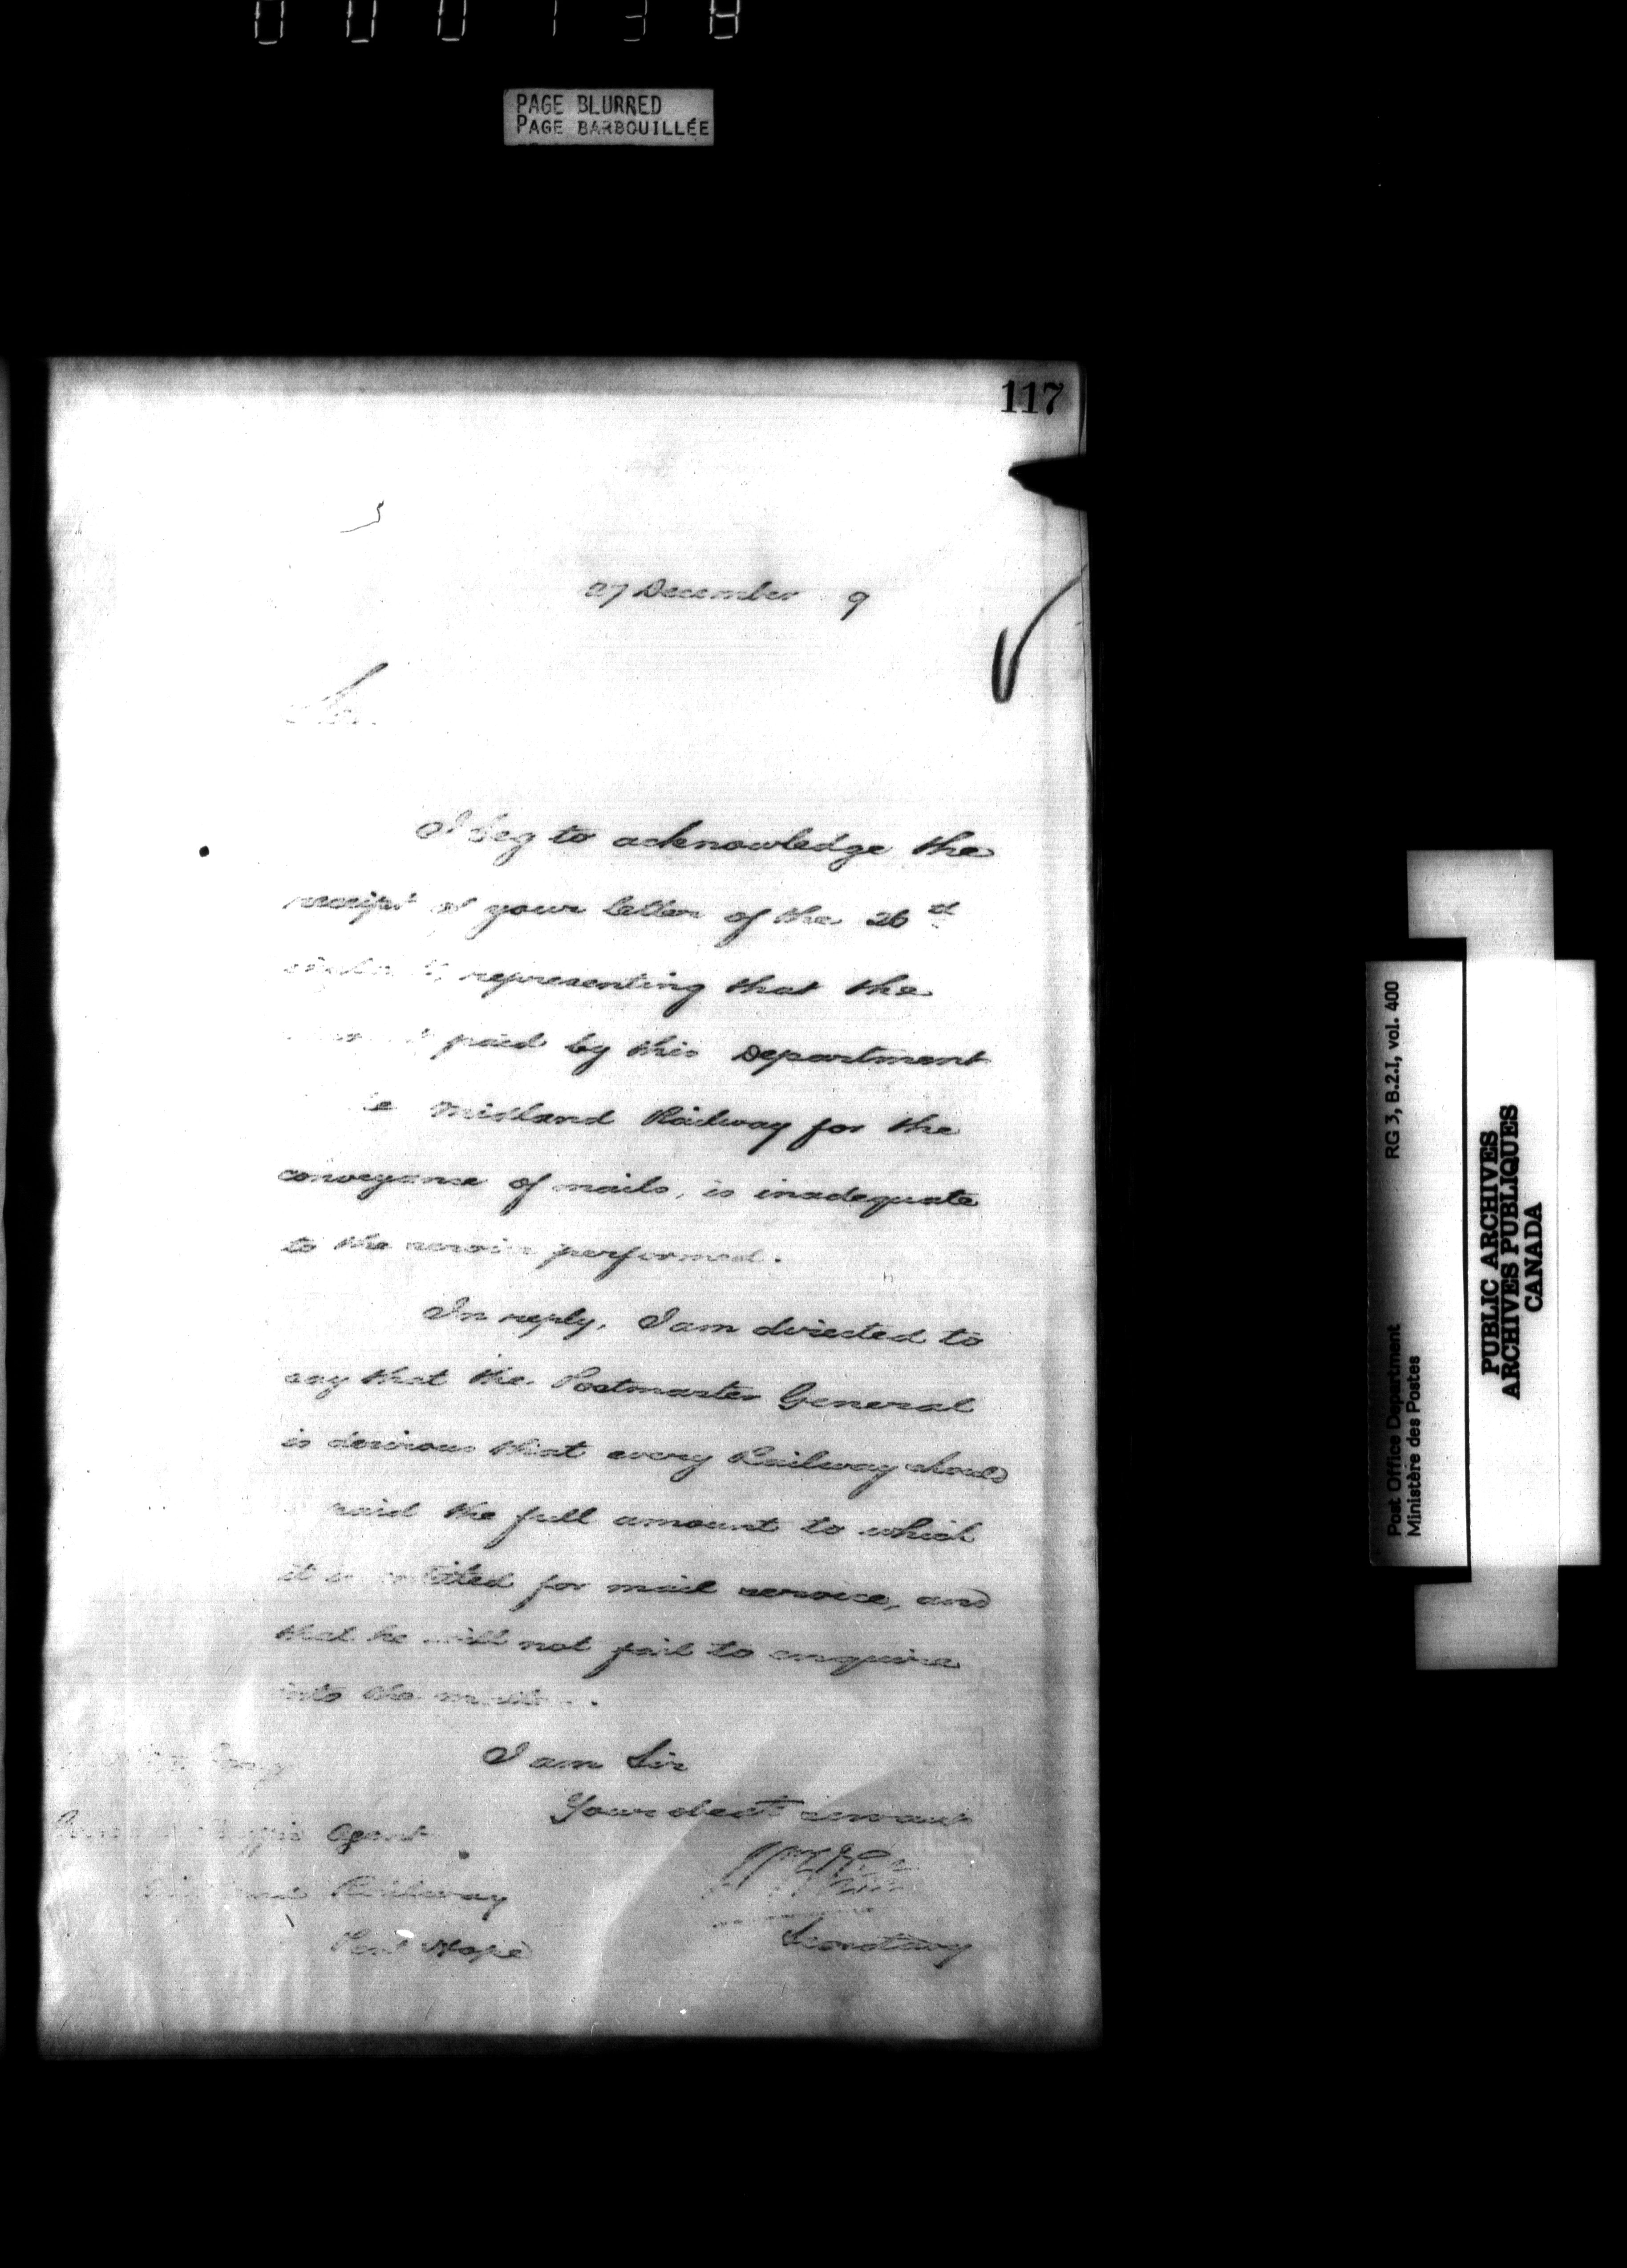 PAGE BLURRED
PAGE BARBOUILLÉE
117
27 December 9
Sir
I beg to acknowledge the
receipt of your letter of the 26th
representing that the
paid by this Department
Midland Railway for the
conveyance of mails, is inadequate
to the service performed.
In reply, I am directed to
say that the Postmaster General
is desirous that every Railway should
paid the full amount to which
it is entitled for mail service, and
that he will not fail to enquire
into the matter.
I am Sir
Your obedt servant
Agent
Railway
Port Hope
Secretary
Post Office Department RG 3, B.2.I, vol. 400
Ministère des Postes
PUBLIC ARCHIVES
ARCHIVES PUBLIQUES
CANADA